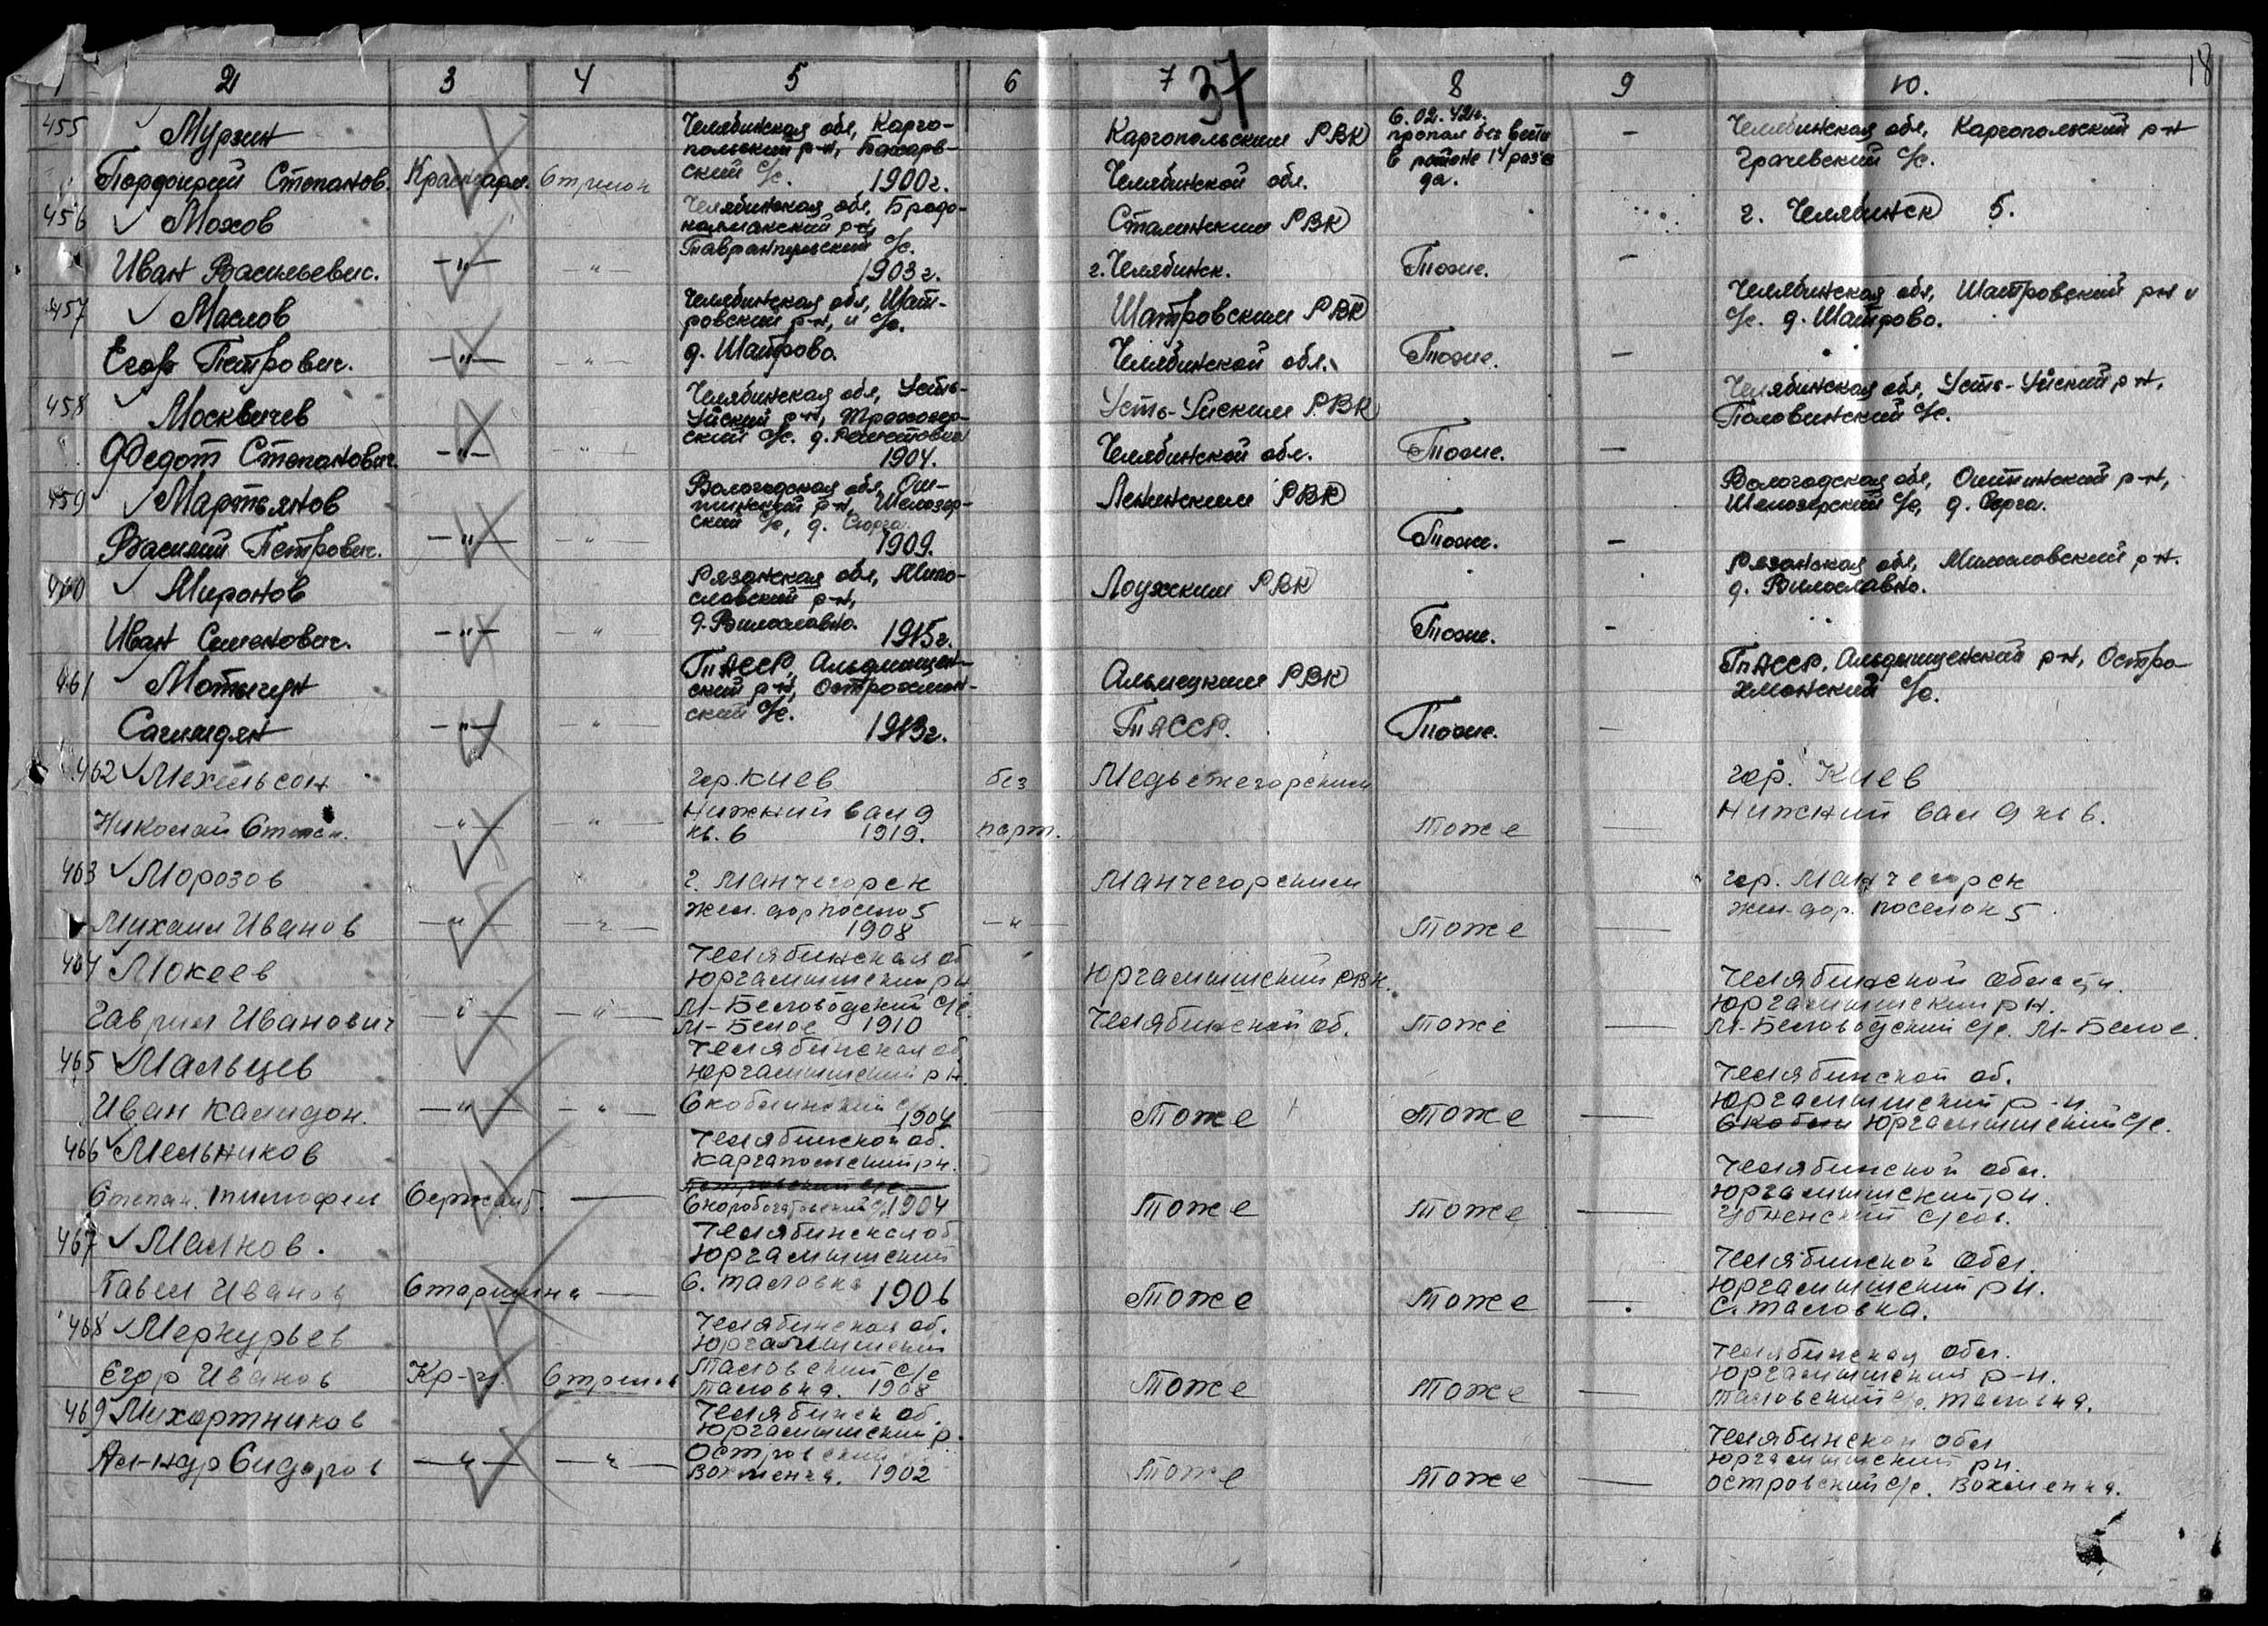 18
1 2 3 4 5 6 7 8 9 10.
37
455 Мурзин
Порфирий Степанов. Красноарм. Стрелок
Челябинская обл, Карго-
польский р-н,
ский с/с. 1900г.
Каргопольским РВК
Челябинской обл.
6.02.42г.
пропал без вести
в районе 14 разъез
да.
–
Челябинская обл, Каргопольский р-н
Грачевский с/с.
456 Мохов
Иван Васильевич. –"– –"–
Челябинская обл, Бродо-
калмакский р-н,
с/с.
1903г.
Сталинским РВК
г. Челябинск.
Тоже.
–
г. Челябинск 5.
457 Маслов
Егор Петрович. –"– –"–
Челябинская обл, Шат-
ровский р-н, и с/с.
д. Шатрово.
Шатровским РВК
Челябинской обл.
Тоже.
–
Челябинская обл, Шатровский р-н и
с/с. д. Шатрово.
458 Москвичев
Федот Степанович. –"– –"–
Челябинская обл, Усть-
Уйский р-н,
ский с/с. д.
1904.
Усть-Уйским РВК
Челябинской обл.
Тоже.
–
Челябинская обл, Усть-Уйский р-н,
Половинский с/с.
459 Мартьянов
Василий Петрович. –"– –"–
Вологодская обл, Ош-
тинский р-н, Шелозер-
ский с/с, д.
1909.
Ленинским РВК
Тоже.
–
Вологодская обл, Оштинский р-н,
Шелозерский с/с, д. Серга.
460 Миронов
Иван Семенович. –"– –"
Рязанская обл, Мило-
славский р-н,
д. Вилославно.
1915г.
Лоухским РВК
Тоже.
–
Рязанская обл, Милославский р-н.
д. Вилославно.
461 Мотыгун
Сагимдян –"– –"–
ТАССР,
ский р-н,
ский с/с. 1913г.
РВК
ТАССР.
Тоже.
–
ТАССР, р-н, Остро-
с/с.
462 Мехельсон
Николай –"– –"–
гор. Киев
Нижний вал 9
кв. 6 1919.
без
парт.
Медвежегорским
Тоже
–
гор. Киев
Нижний вал 9 кв 6.
463 Морозов
Михаил Иванов –"– –"–
г. Манчегорск
жел. дор 5
1908
–"–
Манчегорским
Тоже
–
гор. Манчегорск
жел-дор. поселок 5.
464 Мокеев
Гаврил Иванович –"– –"–
Челябинская об
Юргамышский рн
М-Беловодский с/с.
М-Белое 1910
Юргамышский РВК.
Челябинской об.
Тоже
–
Челябинской области.
Юргамышский рн.
М-Беловодский с/с. М-Белое.
465 Мальцев
Иван Калидон. –"– –"–
Челябинская об
Юргамышский рн.
Скоблинский с/с
1904
–
Тоже
Тоже
–
Челябинской об.
Юргамышский р-н
Скоблин Юргамышский с/с.
466 Мельников
Степан Тимофеи Сержант. –
Челябинской об.
Каргапольский рн.
1904
Тоже
Тоже
–
Челябинской обл.
Юргамышский рн.
467 Малков.
Павел Иванов Старшина –
Челябинская об
Юргамышский
С. Таловка 1906
Тоже
Тоже
–
Челябинской Обл.
Юргамышский рн.
С. Таловка.
468 Меркурьев
Егор Иванов Кр-ц Стрелок
Челябинская об.
Юргамышский
Таловский с/с
Таловка. 1908
Тоже
Тоже
–
Челябинская обл.
Юргамышский р-н.
Таловский с/с. Таловка.
469 Михортников
Ал-ндр Сидоров –"– –"–
Челябинск об.
Юргамышский р.
Островский
Вохменка. 1902
Тоже
Тоже
–
Челябинской обл
Юргамышский рн.
Островский с/с. Вохменка.